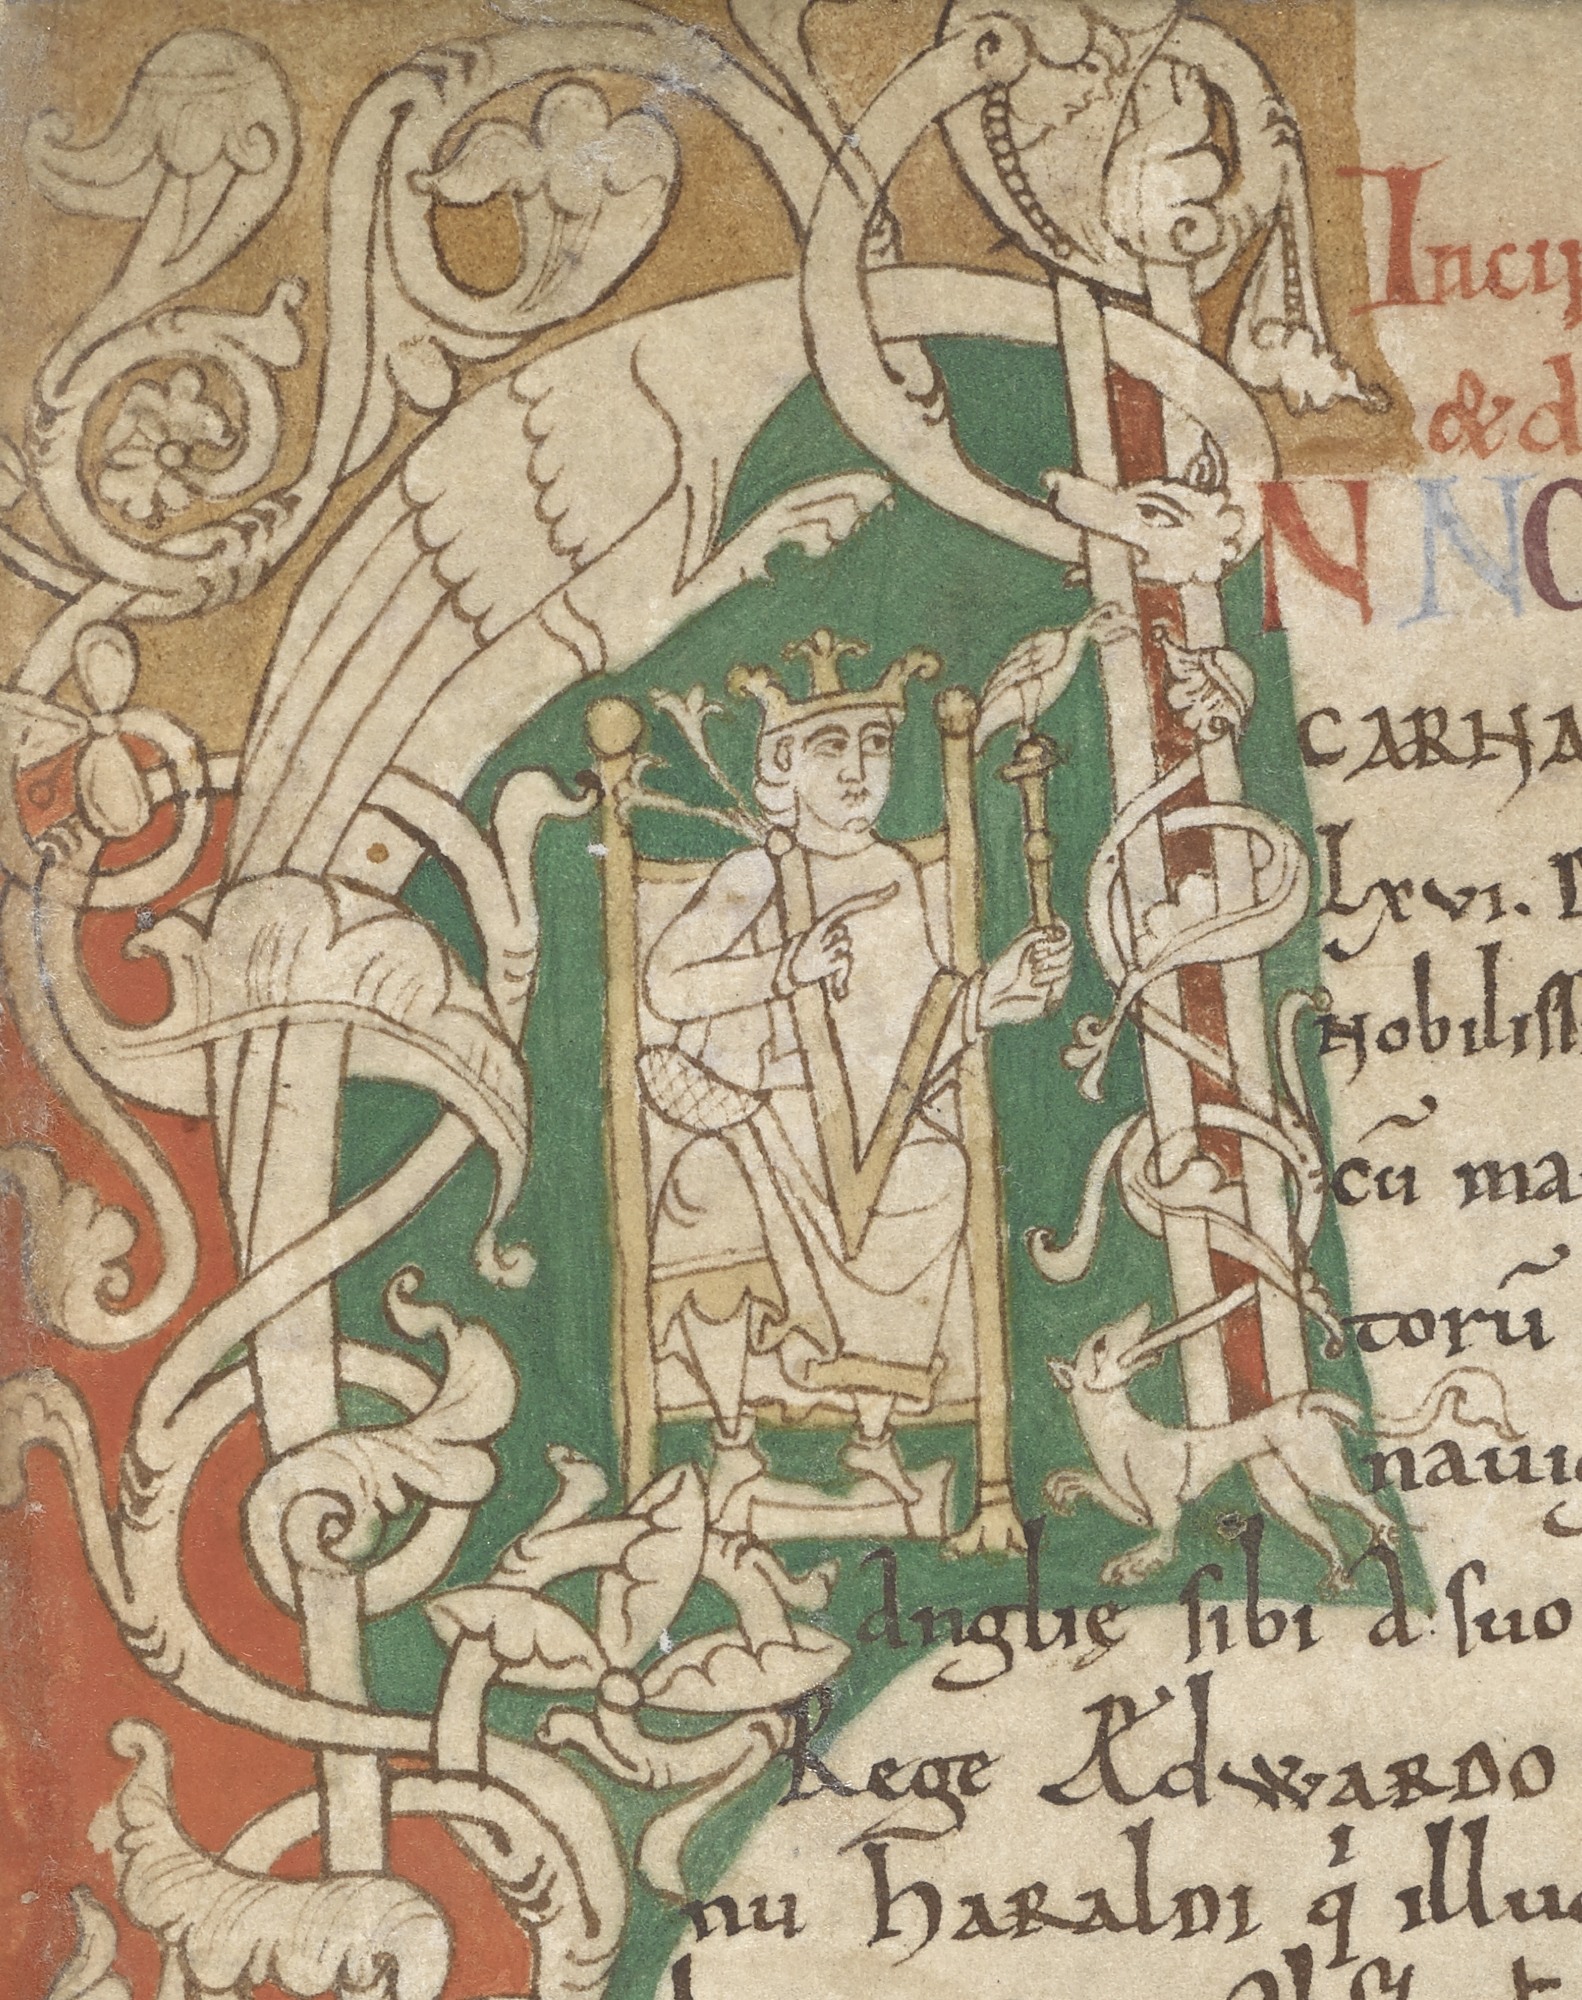 Incip
& d
NNO
CARNA
lxvi. D
Nobiliss
cū ma
torū
nauig
Anglię sibi a suo
Rege Ædwardo
nu haraldi qi illud